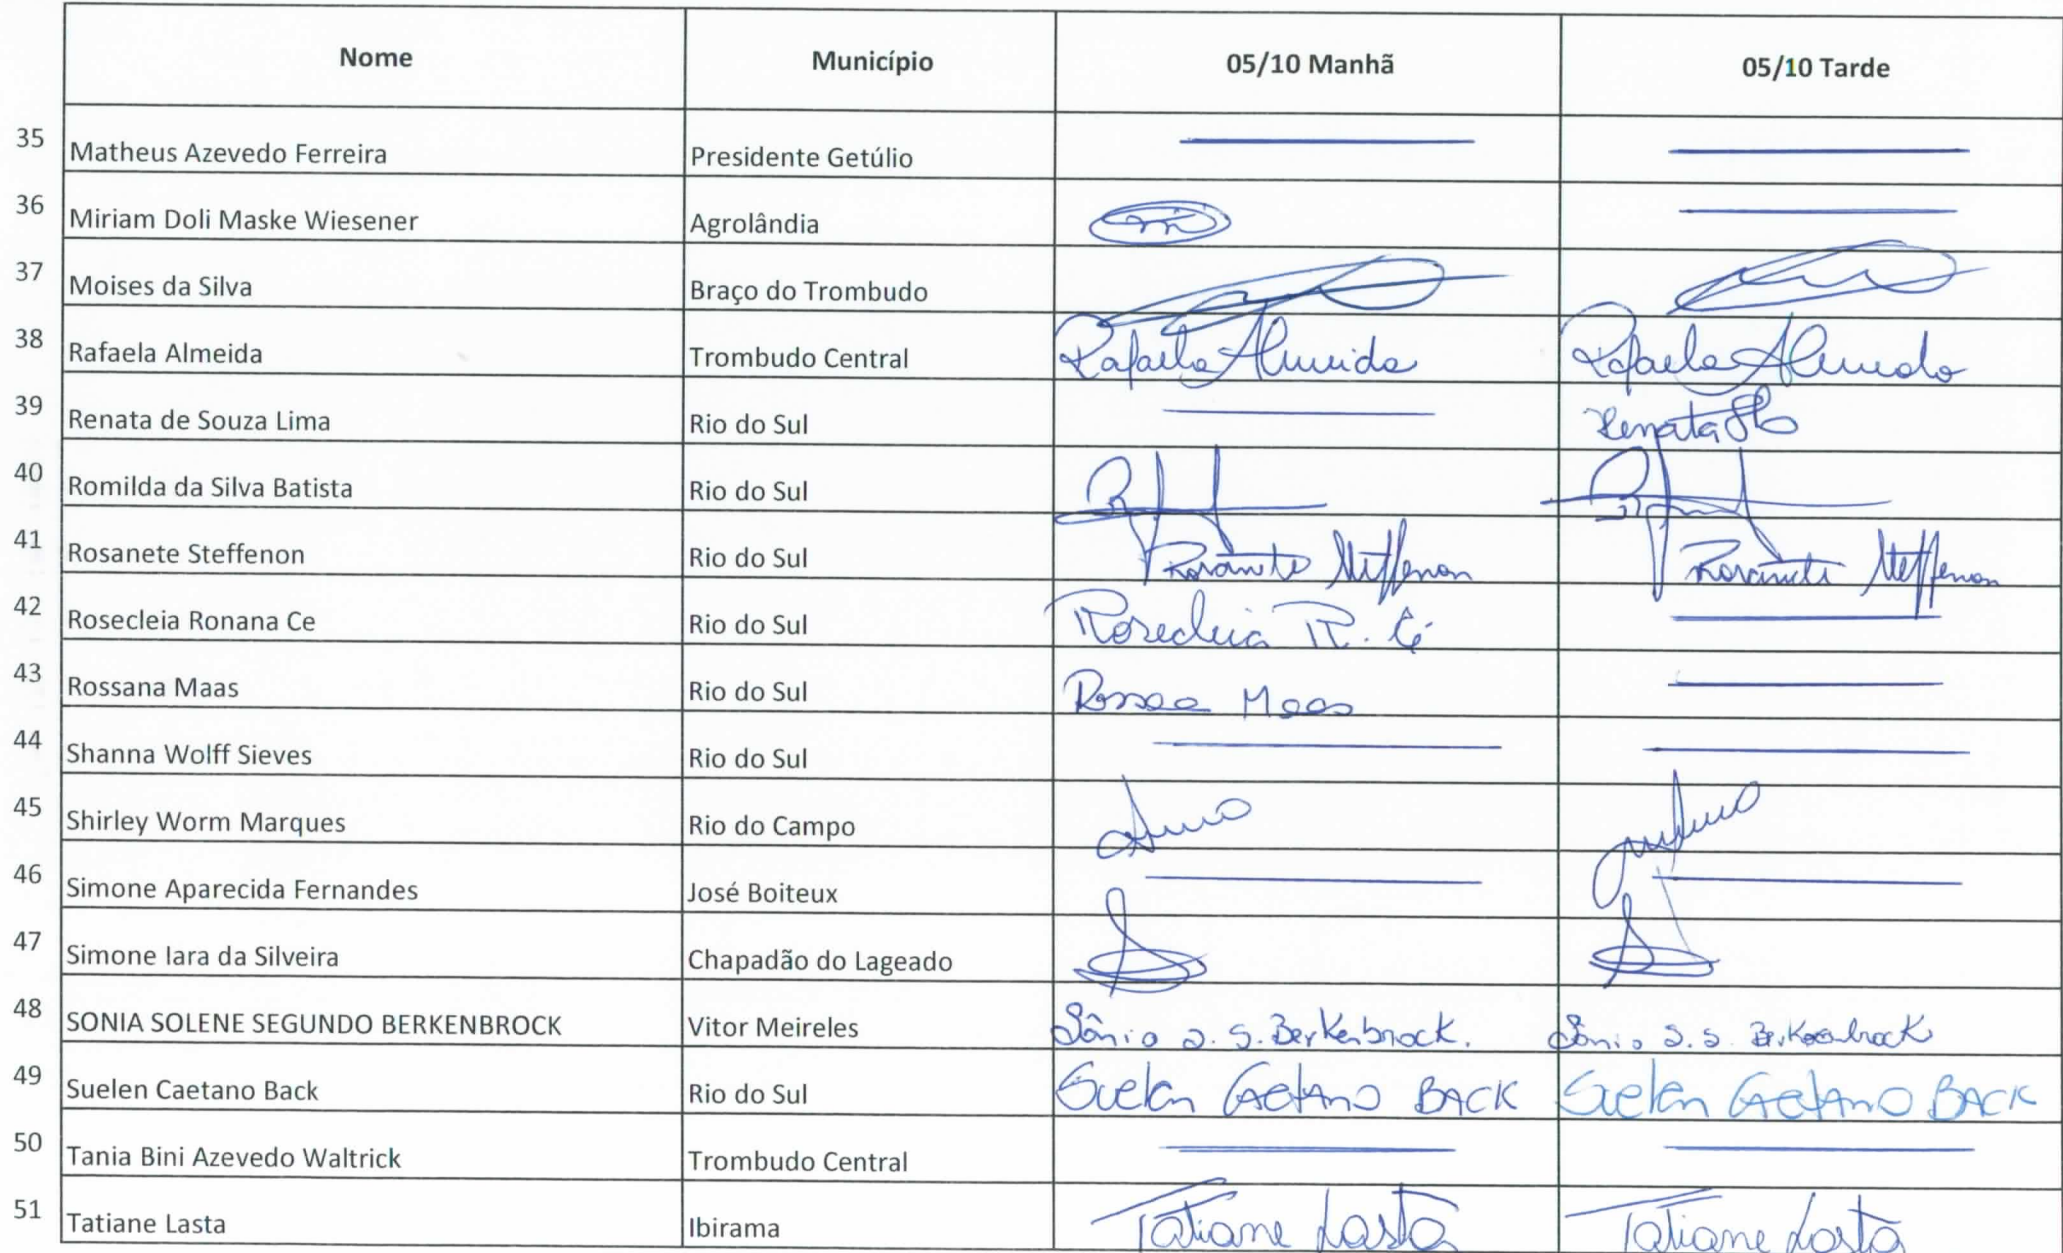 Nome Município 05/10 Manhã 05/10 Tarde
35 Matheus Azevedo Ferreira Presidente Getúlio
36 Miriam Doli Maske Wiesener Agrolândia
37 Moises da Silva Braço do Trombudo
38 Rafaela Almeida Trombudo Central Rafaela Almeida Rafaela Almeida
39 Renata de Souza Lima Rio do Sul Renata
40 Romilda da Silva Batista Rio do Sul
41 Rosanete Steffenon Rio do Sul Rosanete Steffenon Rosanete Steffenon
42 Rosecleia Ronana Ce Rio do Sul Rosecleia R. Cé
43 Rossana Maas Rio do Sul Maas
44 Shanna Wolff Sieves Rio do Sul
45 Shirley Worm Marques Rio do Campo
46 Simone Aparecida Fernandes José Boiteux
47 Simone Iara da Silveira Chapadão do Lageado
48 SONIA SOLENE SEGUNDO BERKENBROCK Vitor Meireles Sônia S. S. Berkenbrock. Sônia S. S. Berkenbrock
49 Suelen Caetano Back Rio do Sul Suelen Caetano BACK Suelen Caetano BACK
50 Tania Bini Azevedo Waltrick Trombudo Central
51 Tatiane Lasta Ibirama Tatiane Lasta Tatiane Lasta